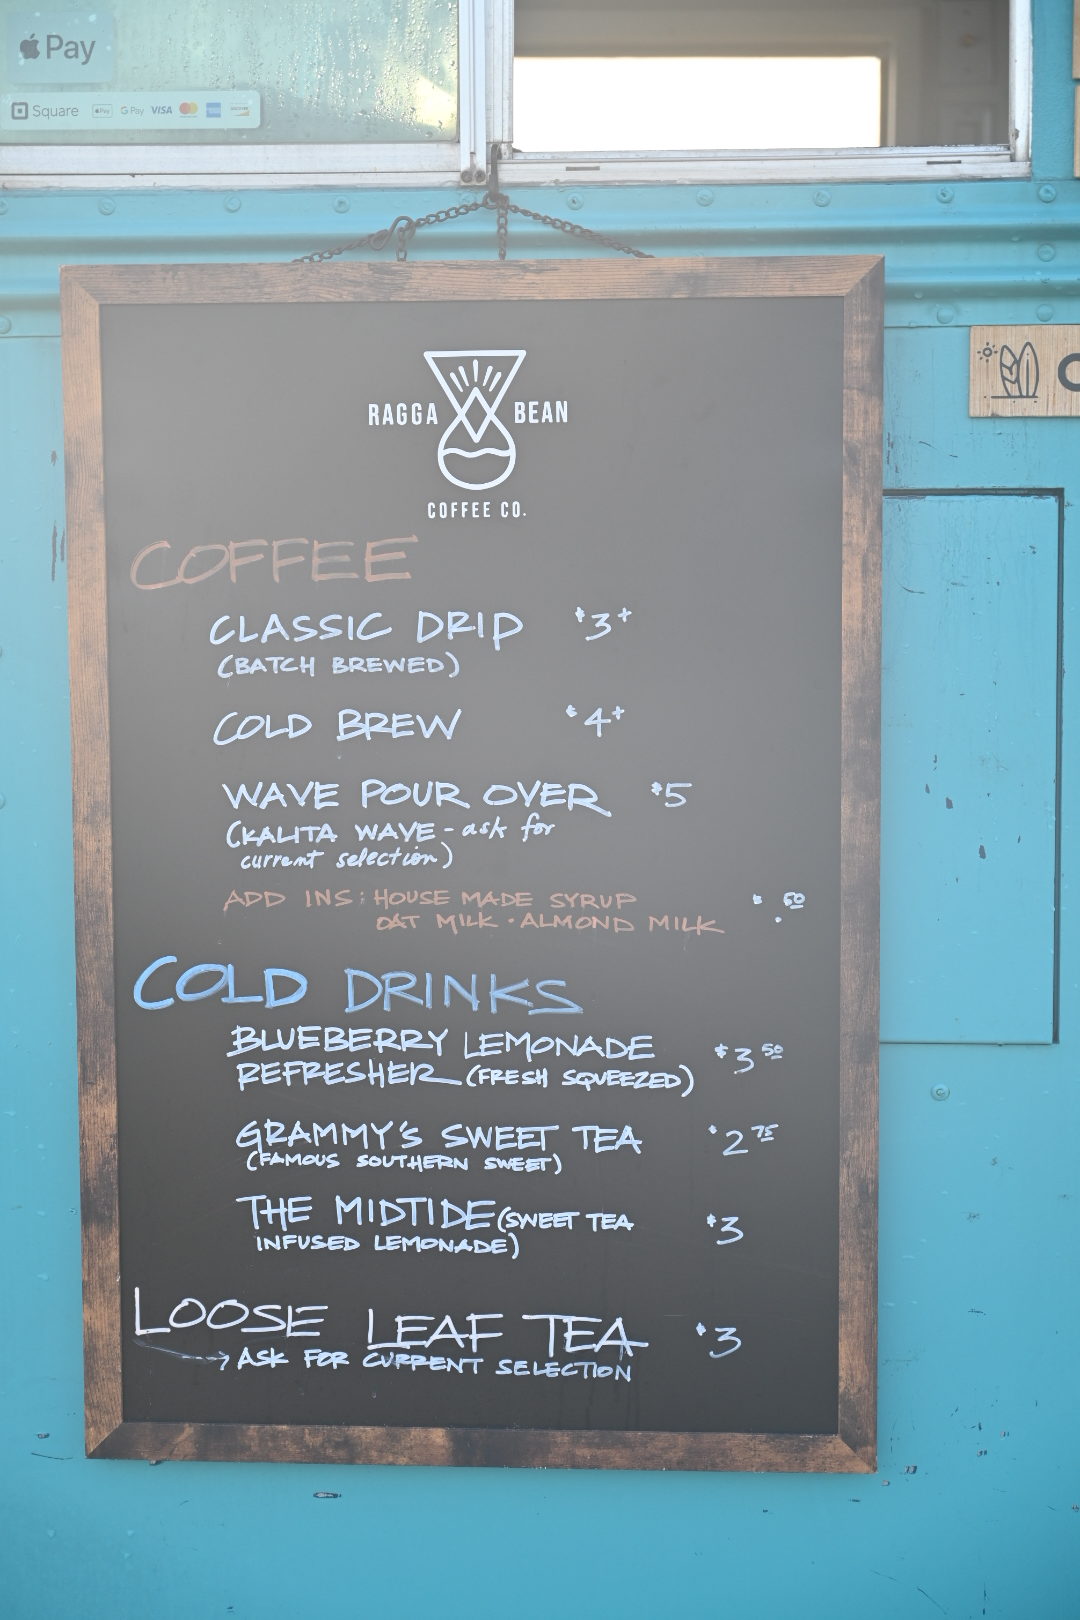 Pay
Square Pay G Pay VISA
RAGGA BEAN
COFFEE CO.
COFFEE
CLASSIC DRIP $3+
(BATCH BREWED)
COLD BREW $4+
WAVE POUR OVER $5
(KALITA WAVE - ask for
current selection)
ADD INS: HOUSE MADE SYRUP $.50
OAT MILK · ALMOND MILK
COLD DRINKS
BLUEBERRY LEMONADE
REFRESHER (FRESH SQUEEZED) $3 50
GRAMMY'S SWEET TEA $2 75
(FAMOUS SOUTHERN SWEET)
THE MIDTIDE (SWEET TEA $3
INFUSED LEMONADE)
LOOSE LEAF TEA $3
→ ASK FOR CURRENT SELECTION